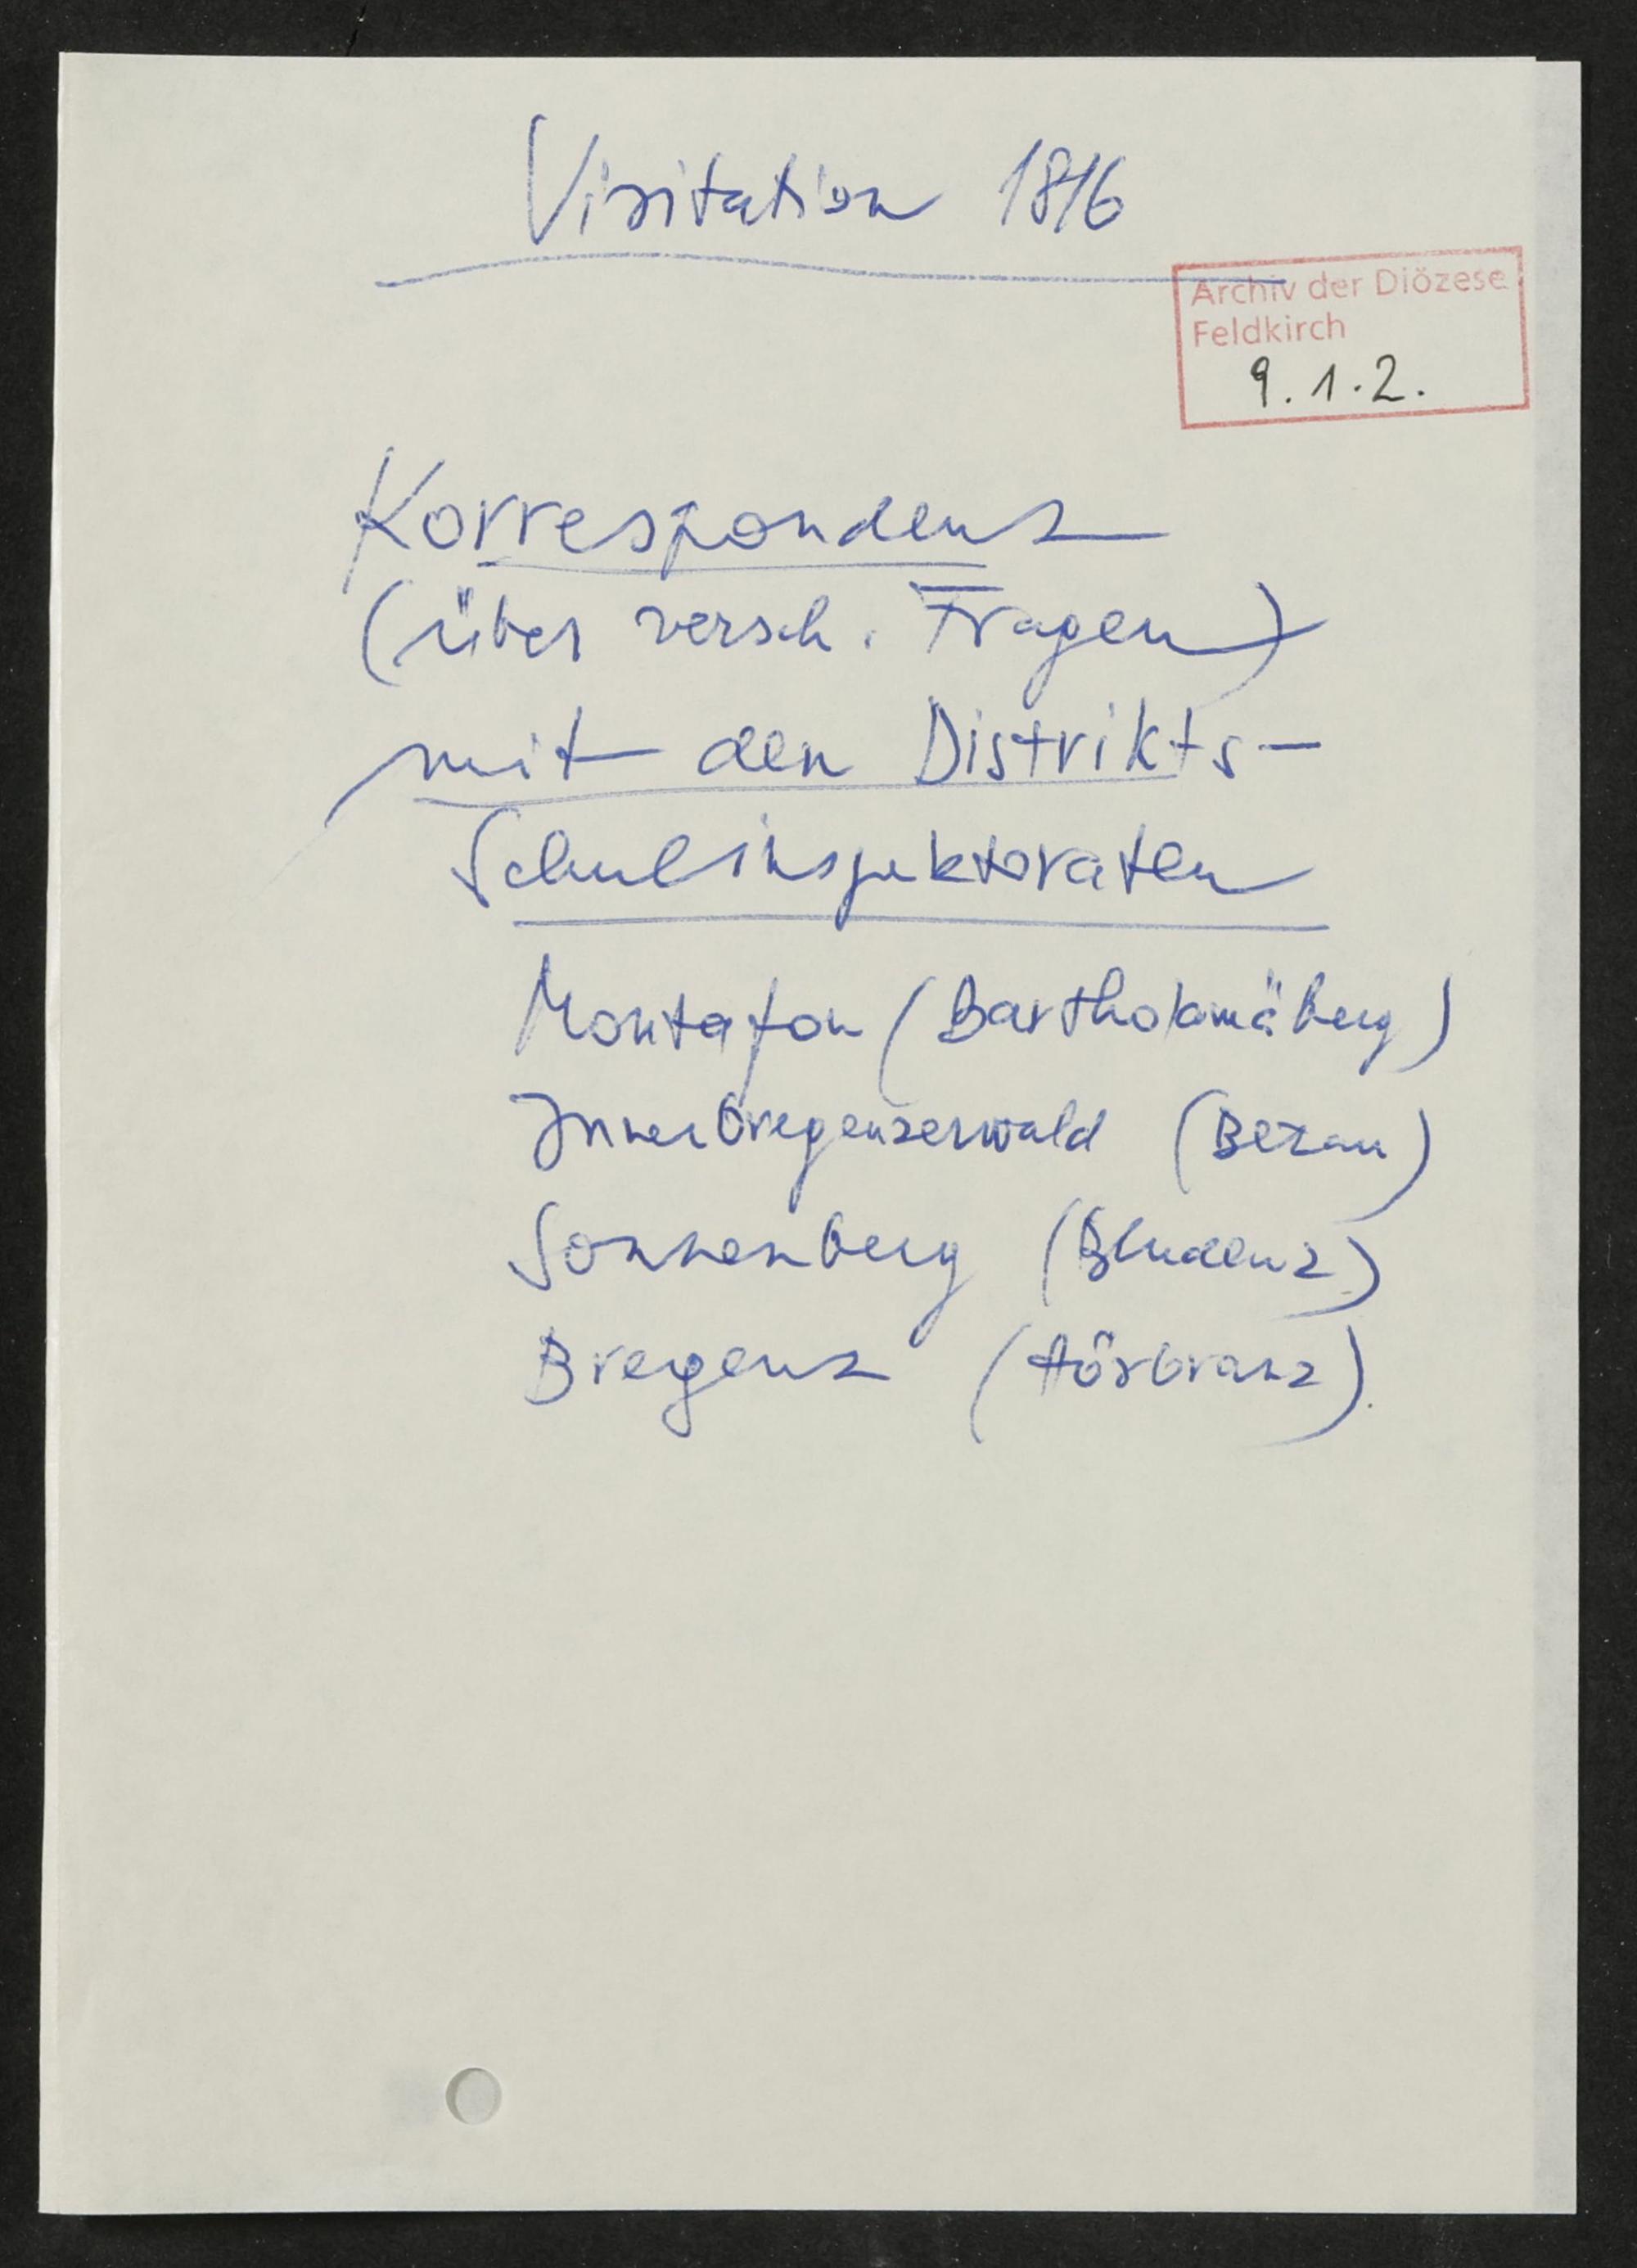 Visitation 1816
Archiv der Diözese
Feldkirch
9.1.2.
Korrespondenz
(über versch. Fragen)
mit den Distrikts-
Schulinspektoraten
Montafon (Bartholomäberg)
Innerbregenzerwald (Bezau)
Sonnenberg (Bludenz)
Bregenz (Hörbranz).